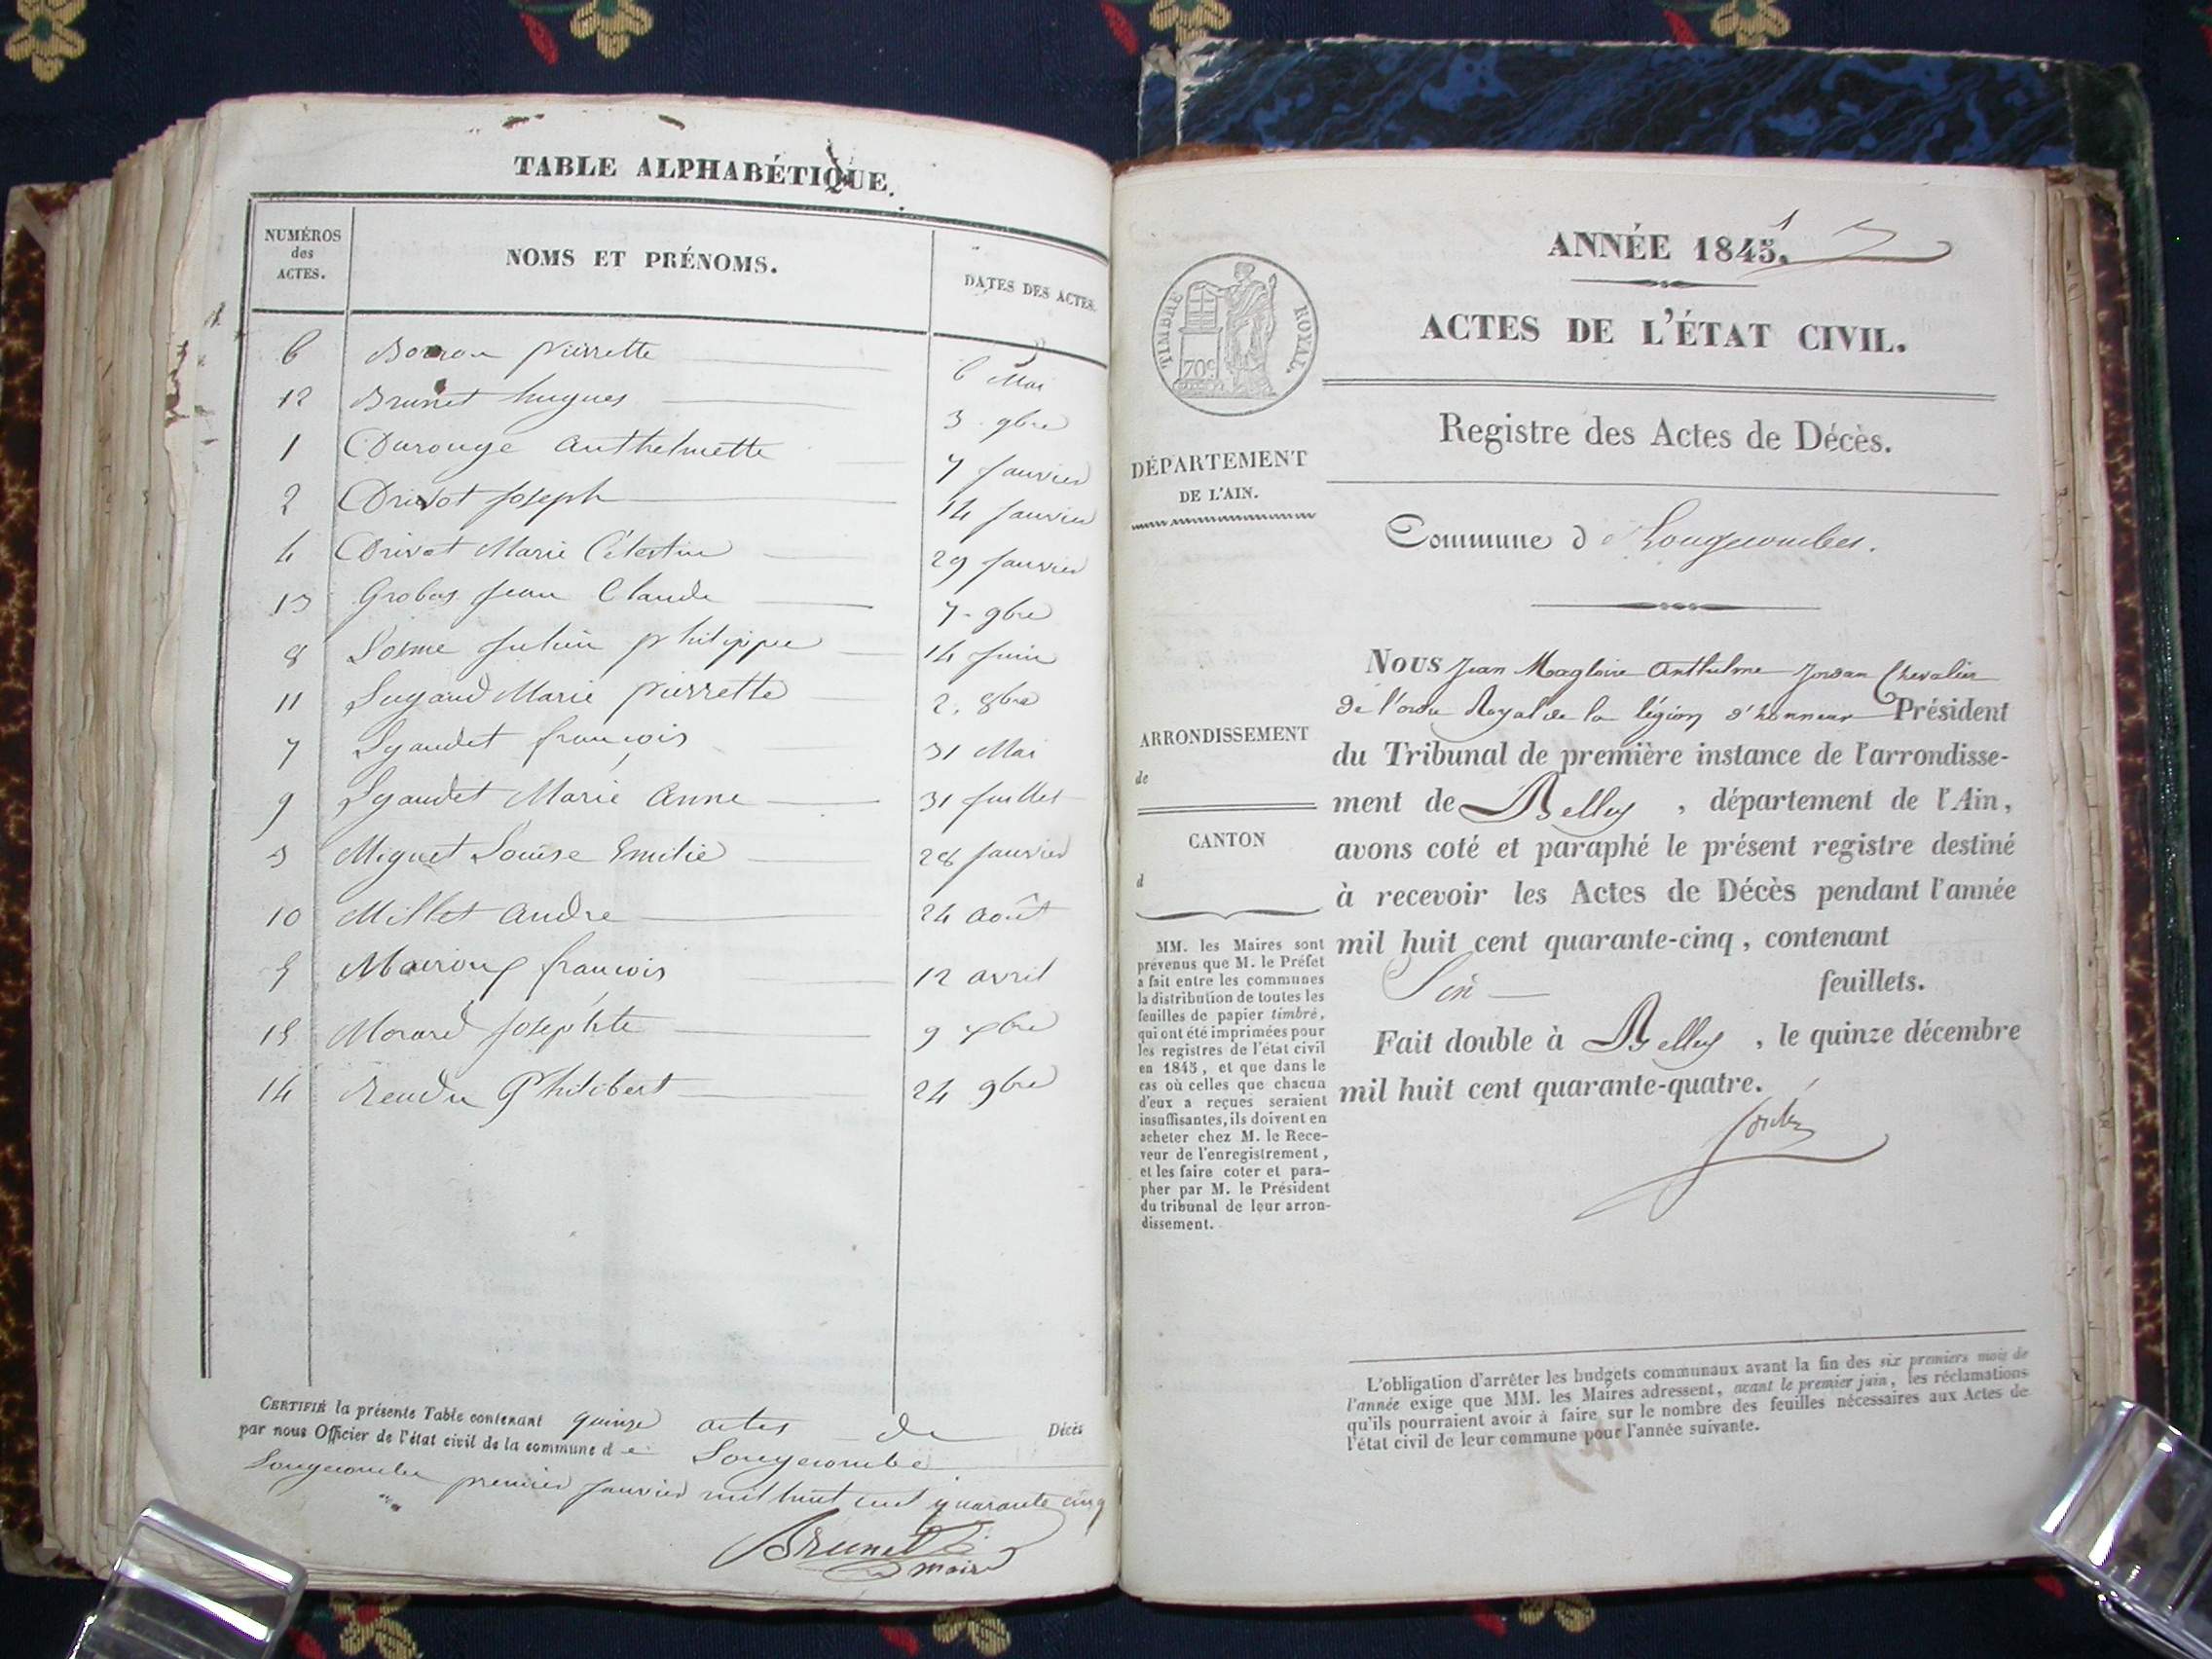 TABLE ALPHABÉTIQUE.
NUMÉROS
des
ACTES.
NOMS ET PRÉNOMS.
DATES DES ACTES.
6 Pierrette 6 Mai
12 Brunet hugues 3 9bre
1 Durouge Anthelmette 7 Janvier
2 Drivot Joseph 14 Janvier
4 Drivot Marie Célestine 29 Janvier
13 Grobas Jean Claude 7 9bre
8 Losme Julien philippe 14 Juin
11 Lugand Marie pierrette 2 8bre
7 Lyaudet françois 31 Mai
9 Lyaudet Marie Anne 31 Juillet
3 Miguet Louise Emilie 28 Janvier
10 Millet André 24 Août
5 françois 12 avril
15 Morard Josephte 9 xbre
14 Rendu Philibert 24 9bre
CERTIFIÉ la présente Table contenant quinze actes de Décès
par nous Officier de l'état civil de la commune de Longecombe
Longecombe premier Janvier mil huit cent quarante cinq
Brunet
maire
1
ANNÉE 1845.
ACTES DE L'ÉTAT CIVIL.
TIMBRE ROYAL.
70c
Registre des Actes de Décès.
DÉPARTEMENT
DE L'AIN.
Commune de Longecombes.
NOUS Jean Magloire Anthelme Jordan Chevalier
de l'ordre Royal de la légion d'honneur Président
du Tribunal de première instance de l'arrondisse-
ment de Belley, département de l'Ain,
avons coté et paraphé le présent registre destiné
à recevoir les Actes de Décès pendant l'année
mil huit cent quarante-cinq, contenant
Six feuillets.
Fait double à Belley, le quinze décembre
mil huit cent quarante-quatre.
Jordan
ARRONDISSEMENT
de
CANTON
d
MM. les Maires sont
prévenus que M. le Préfet
a fait entre les communes
la distribution de toutes les
feuilles de papier timbré,
qui ont été imprimées pour
les registres de l'état civil
en 1845, et que dans le
cas où celles que chacun
d'eux a reçues seraient
insuffisantes, ils doivent en
acheter chez M. le Rece-
veur de l'enregistrement,
et les faire coter et para-
pher par M. le Président
du tribunal de leur arron-
dissement.
L'obligation d'arrêter les budgets communaux avant la fin des six premiers mois de
l'année exige que MM. les Maires adressent, avant le premier juin, les réclamations
qu'ils pourraient avoir à faire sur le nombre des feuilles nécessaires aux Actes de
l'état civil de leur commune pour l'année suivante.